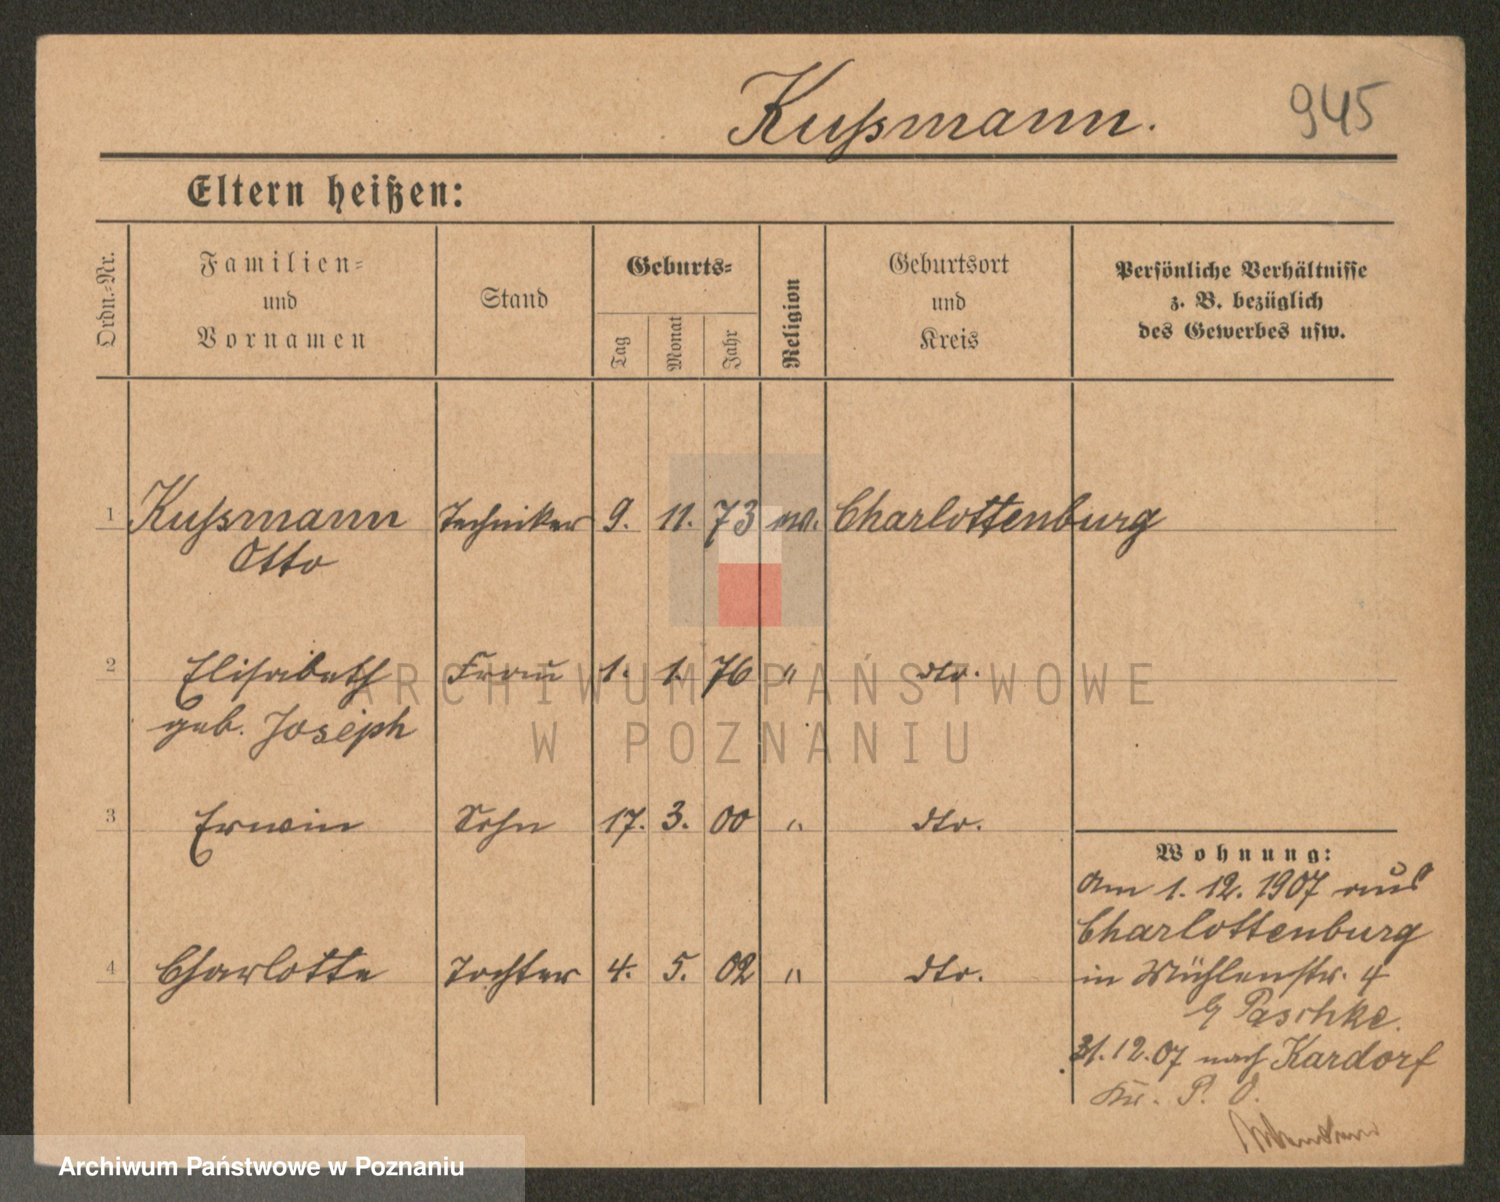 Kußmann. 945
Eltern heißen:
Ordn.-Nr.
Familien-
und
Vornamen
Stand
Geburts-
Tag
Monat
Jahr
Religion
Geburtsort
und
Kreis
Persönliche Verhältnisse
z. B. bezüglich
des Gewerbes usw.
1 Kußmann Techniker 9. 11. 73 ev. Charlottenburg
Otto
2 Elisabeth Frau 1. 1. 76 " dto.
geb. Joseph
3 Erwin Sohn 17. 3. 00 " dto.
4 Charlotte Tochter 4. 5. 02 " dto.
Wohnung:
Am 1. 12. 1907 aus
Charlottenburg
in Mühlenstr. 4
Paschke.
31.12.07 nach Kardorf
Kr. P. O.
ARCHIWUM PAŃSTWOWE
W POZNANIU
Archiwum Państwowe w Poznaniu